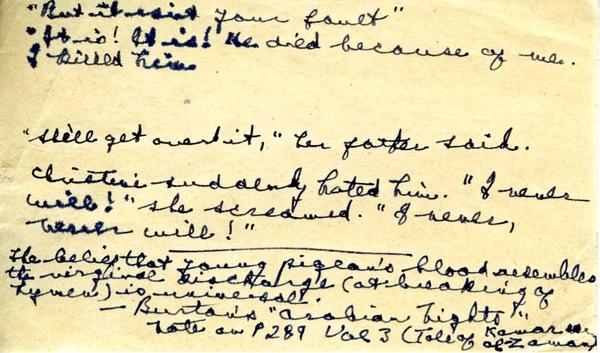 "But it isn't your fault"
"It is! It is! He died because of me.
I killed him.
"She'll get over it," her father said.
Christine suddenly hated him. "I never
will!" she screamed. "I never,
never will!"
The belief that young pigeon's blood resembles
the virginal discharge (at breaking of
hymen) is universal.
— Burton's "Arabian Nights"
note on P 289 Vol 3 (Tale of Kamar
al-Zaman)